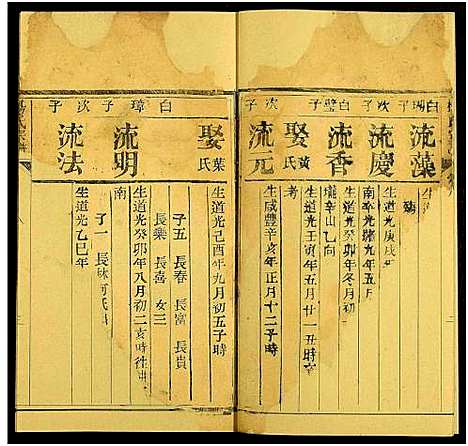 白瑚子
次子
白璧子
次子
流藻
流慶
生道光庚戌
南 光緒九年五月
流香
生道光癸卯年冬月
壠辛山乙向
娶黃氏
生道光壬寅年五月廿一丑時
考
流元
生咸豐辛亥年正月十二子時
白璋子
次子
娶葉氏
生道光己酉年九月初五子時
子五 長春 長富 長貴
長樂 長喜 女三
流明
生道光癸卯年八月初二亥時
南
子一 長
流法
生道光乙巳年